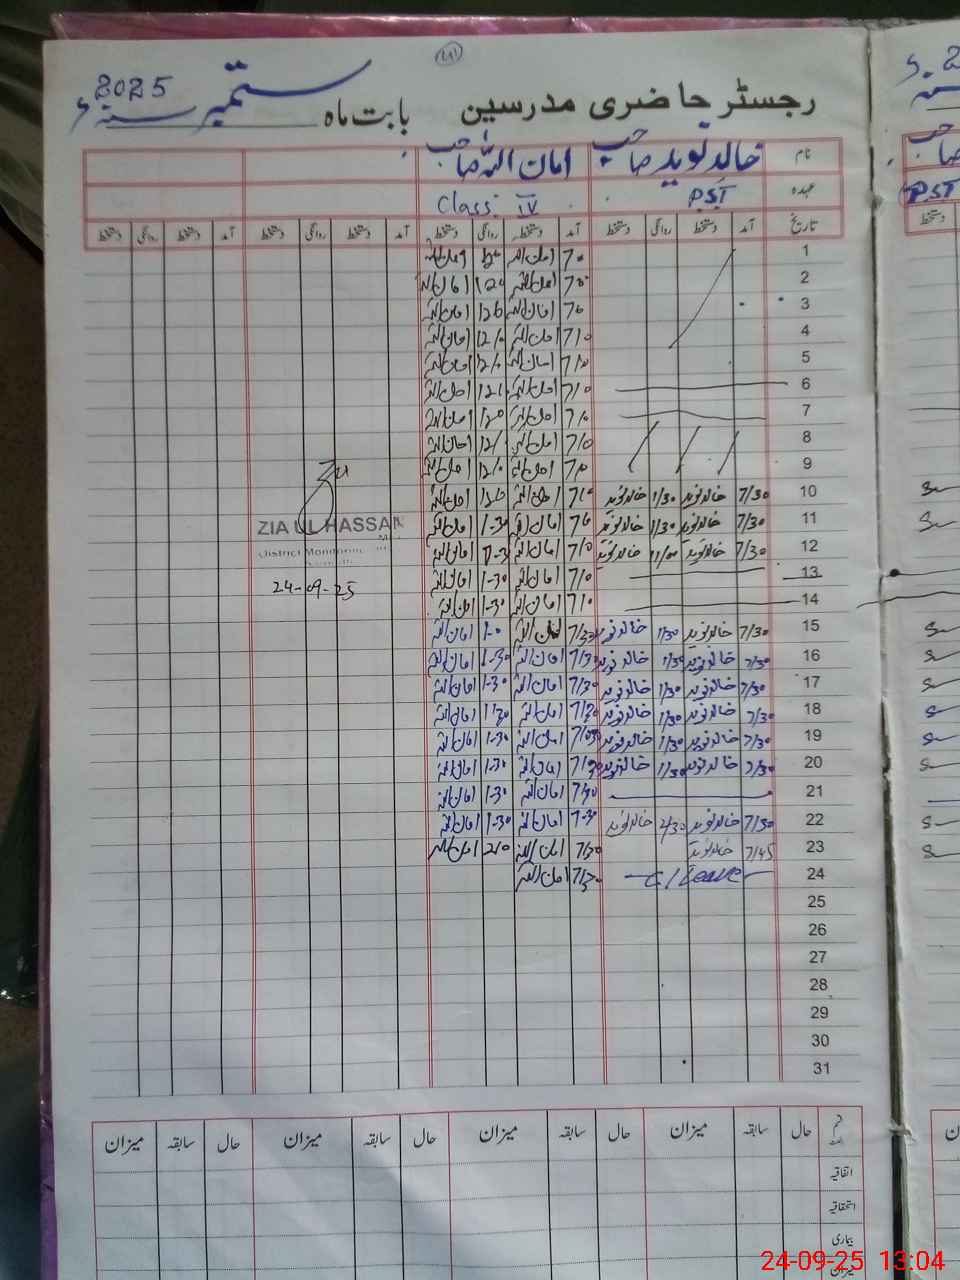 رجسٹر حاضری مدرسین بابت ماہ ستمبر سنہ 2025ء
نام خالد نوید صاحب امان اللہ صاحب
عہدہ P.S.T Class IV
تاریخ آمد دستخط روانگی دستخط آمد دستخط روانگی دستخط آمد دستخط روانگی دستخط آمد دستخط روانگی دستخط
1 امان اللہ
2 امان اللہ امان اللہ
3 امان اللہ امان اللہ
4 7/0 امان اللہ 12/0 امان اللہ
5 7/0 امان اللہ 12/0 امان اللہ
6 7/0 امان اللہ امان اللہ
7 7/0 امان اللہ امان اللہ
8 7/0 امان اللہ 12/0 امان اللہ
9 7/0 امان اللہ 12/0 امان اللہ
10 7/30 خالد نوید 1/30 خالد نوید امان اللہ امان اللہ
11 7/30 خالد نوید 1/30 خالد نوید امان اللہ 1-30 امان اللہ
12 7/30 خالد نوید 11/00 خالد نوید 7/0 امان اللہ امان اللہ
13 7/0 امان اللہ 1-30 امان اللہ
14 7/0 امان اللہ 1-30 امان اللہ
15 7/30 خالد نوید 1/30 خالد نوید 7/30 امان اللہ 1-0 امان اللہ
16 7/30 خالد نوید 1/30 خالد نوید 7/30 امان اللہ 1-30 امان اللہ
17 7/30 خالد نوید 1/30 خالد نوید 7/30 امان اللہ 1-30 امان اللہ
18 7/30 خالد نوید 1/30 خالد نوید 7/30 امان اللہ 1/30 امان اللہ
19 7/30 خالد نوید 1/30 خالد نوید امان اللہ 1-30 امان اللہ
20 7/30 خالد نوید 1/30 خالد نوید امان اللہ 1-30 امان اللہ
21 7/30 امان اللہ 1-30 امان اللہ
22 7/30 خالد نوید 2/30 خالد نوید 7-30 امان اللہ 1-30 امان اللہ
23 7/45 خالد نوید 7/30 امان اللہ 2/0 امان اللہ
24 C/Leave 7/30 امان اللہ
25
26
27
28
29
30
31
ZIA UL HASSAN
District Monitoring
24-09-25
قسم حال سابقہ میزان حال سابقہ میزان حال سابقہ میزان حال سابقہ میزان
اتفاقیہ
استحقاقیہ
بیماری
میزان
P.S.T
دستخط
24-09-25 13:04